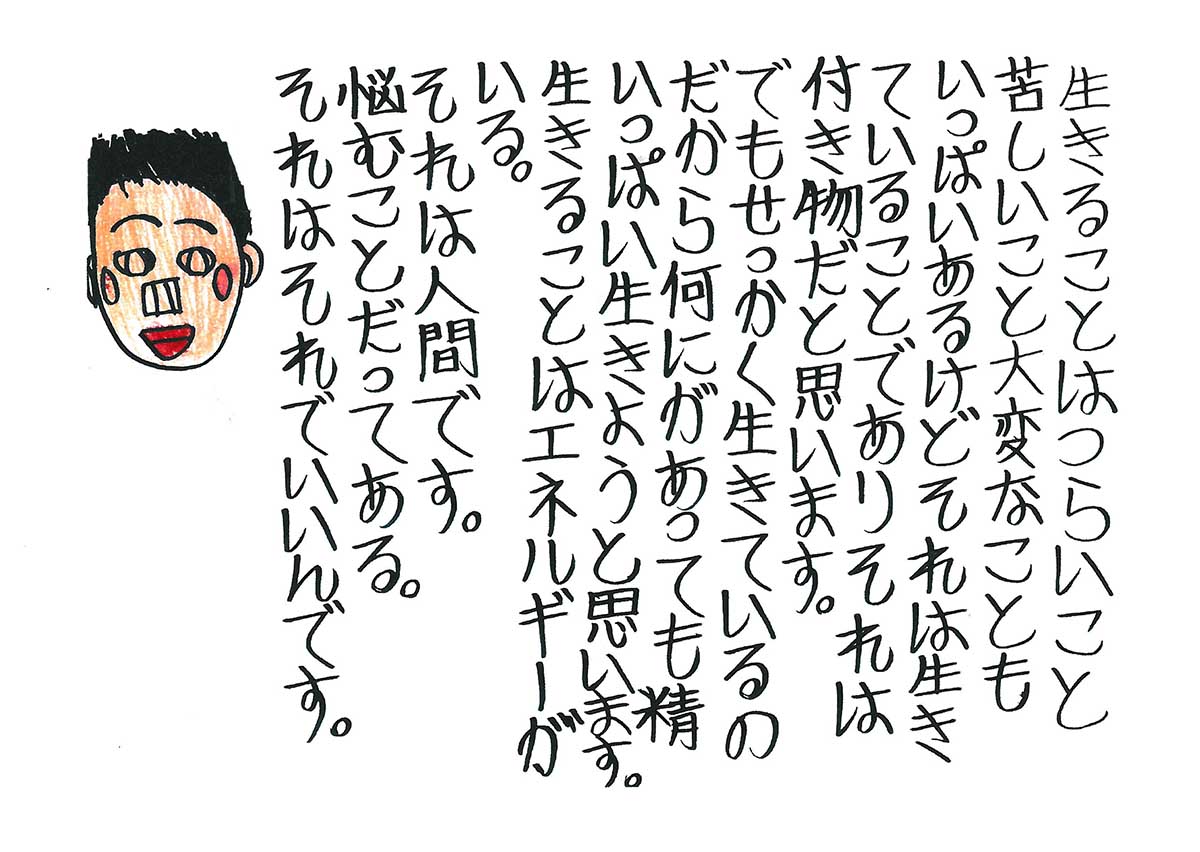 生きることはつらいこと
苦しいこと大変なことも
いっぱいあるけどそれは生き
ていることでありそれは
付き物だと思います。
でもせっかく生きているの
だから何にがあっても精
いっぱい生きようと思います。
生きることはエネルギーが
いる。
それは人間です。
悩むことだってある。
それはそれでいいんです。